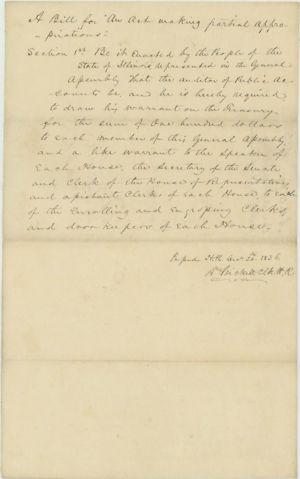 A Bill for "An Act making partial appro-
-priations."
Section 1st Be it Enacted by the People of the
State of Illinois represented in the General
Assembly That the auditor of Public Ac-
counts be, and he is hereby required
to draw his warrant on the Treasury
for the sum of One hundred dollars
to each member of this General Assembly,
and a like warrant to the Speaker of
Each House, the Secretary of the Senate
and Clerk of the House of Representatives
and assistant Clerks of Each House, to Each
of the Enrolling and Engrossing Clerks,
and door keepers of Each House,
Passed H.R. 1836
Prickett Clk H.R.